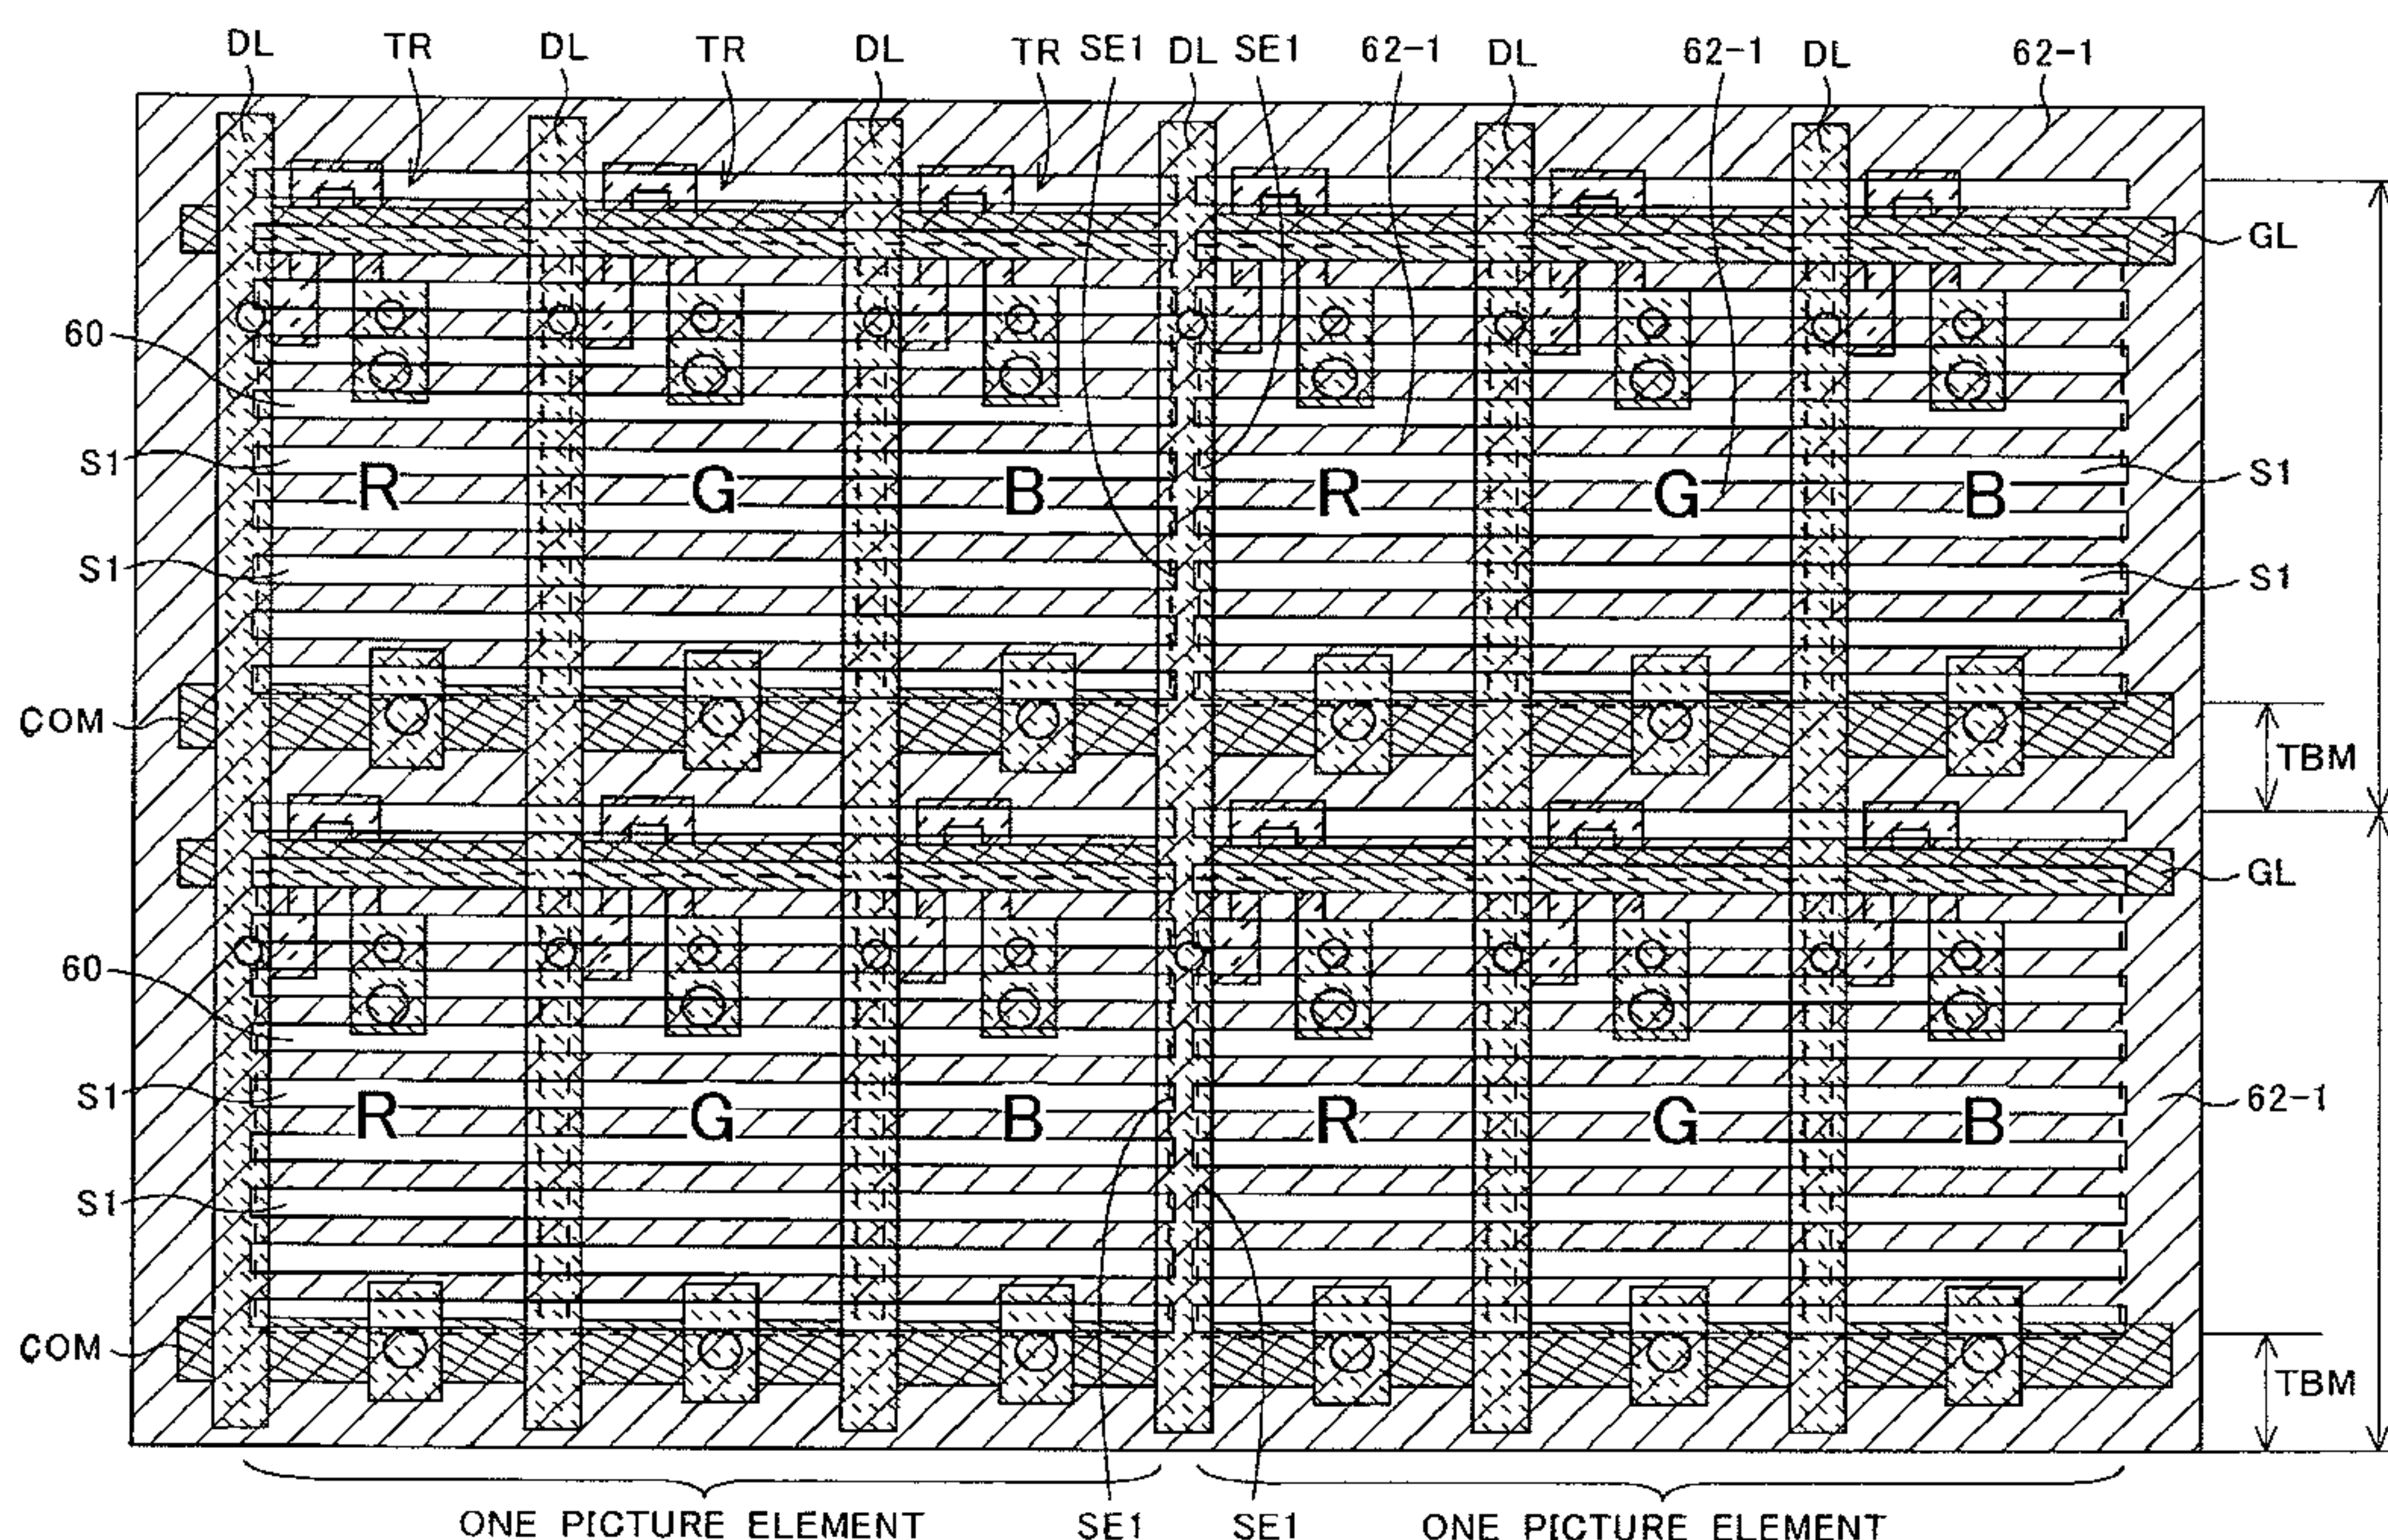 DL TR DL TR DL TR SE1 DL SE1 62-1 DL 62-1 DL 62-1
GL
60
S1 R G B R G B S1
S1 S1
COM TBM
GL
60
S1 R G B R G B 62-1
S1
COM TBM
ONE PICTURE ELEMENT SE1 SE1 ONE PICTURE ELEMENT